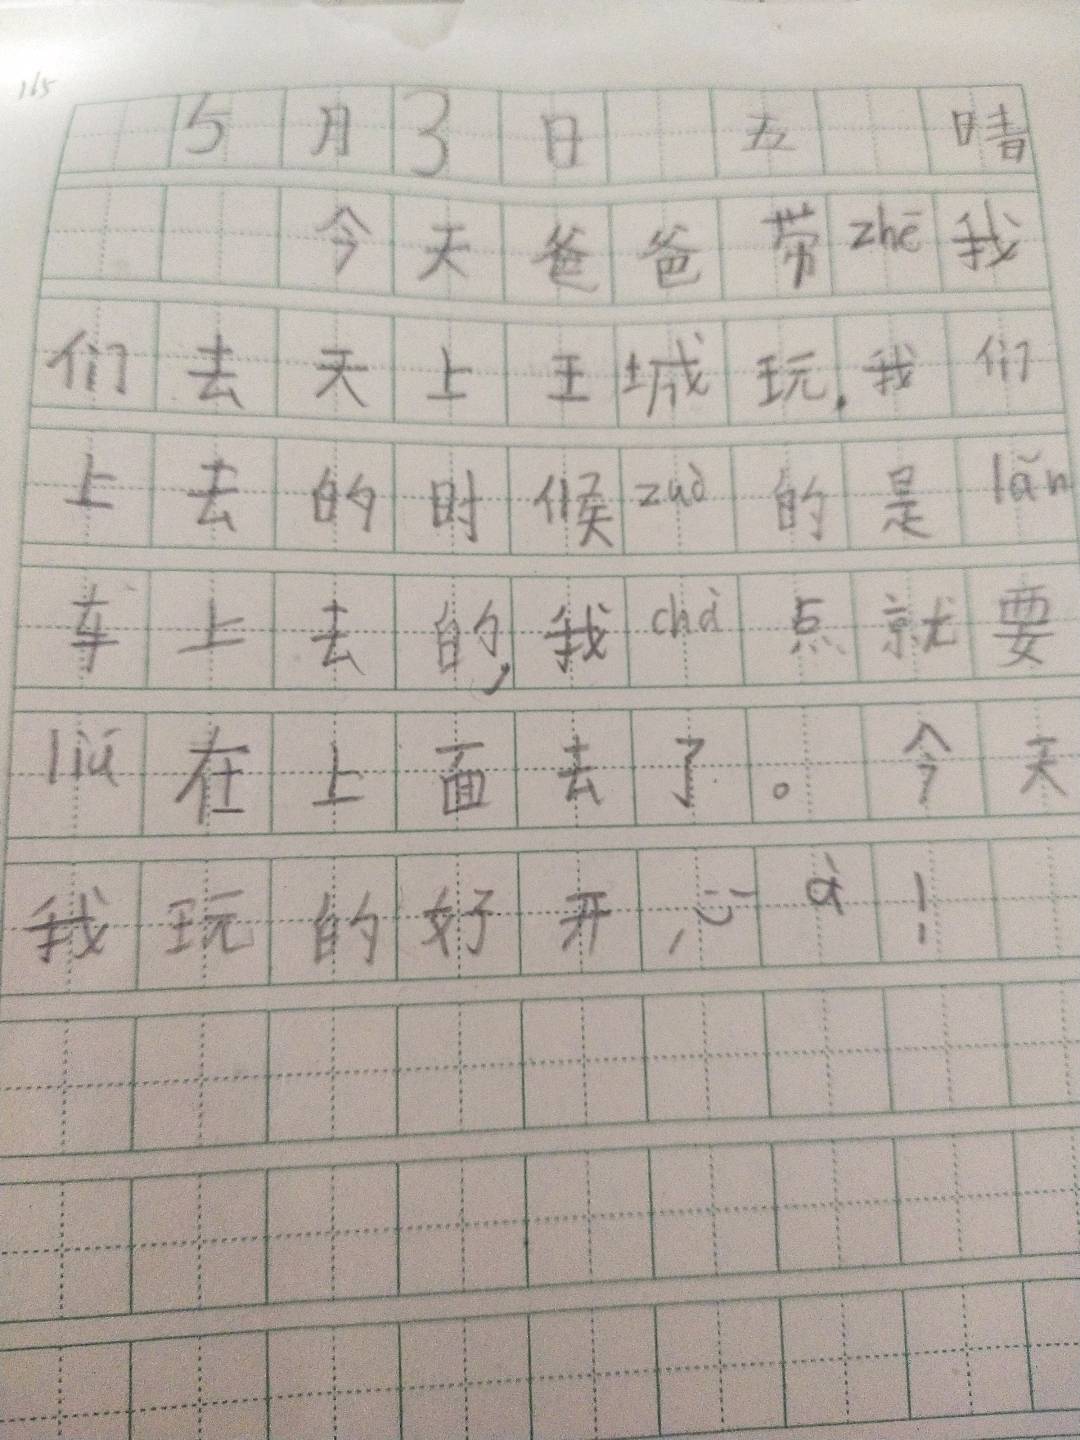 165
5月3日 五 晴
今天爸爸带zhē我
们去天上王城玩.我们
上去的时候zuò的是lǎn
车上去的,我chà点就要
liú在上面去了。今天
我玩的好开心à!